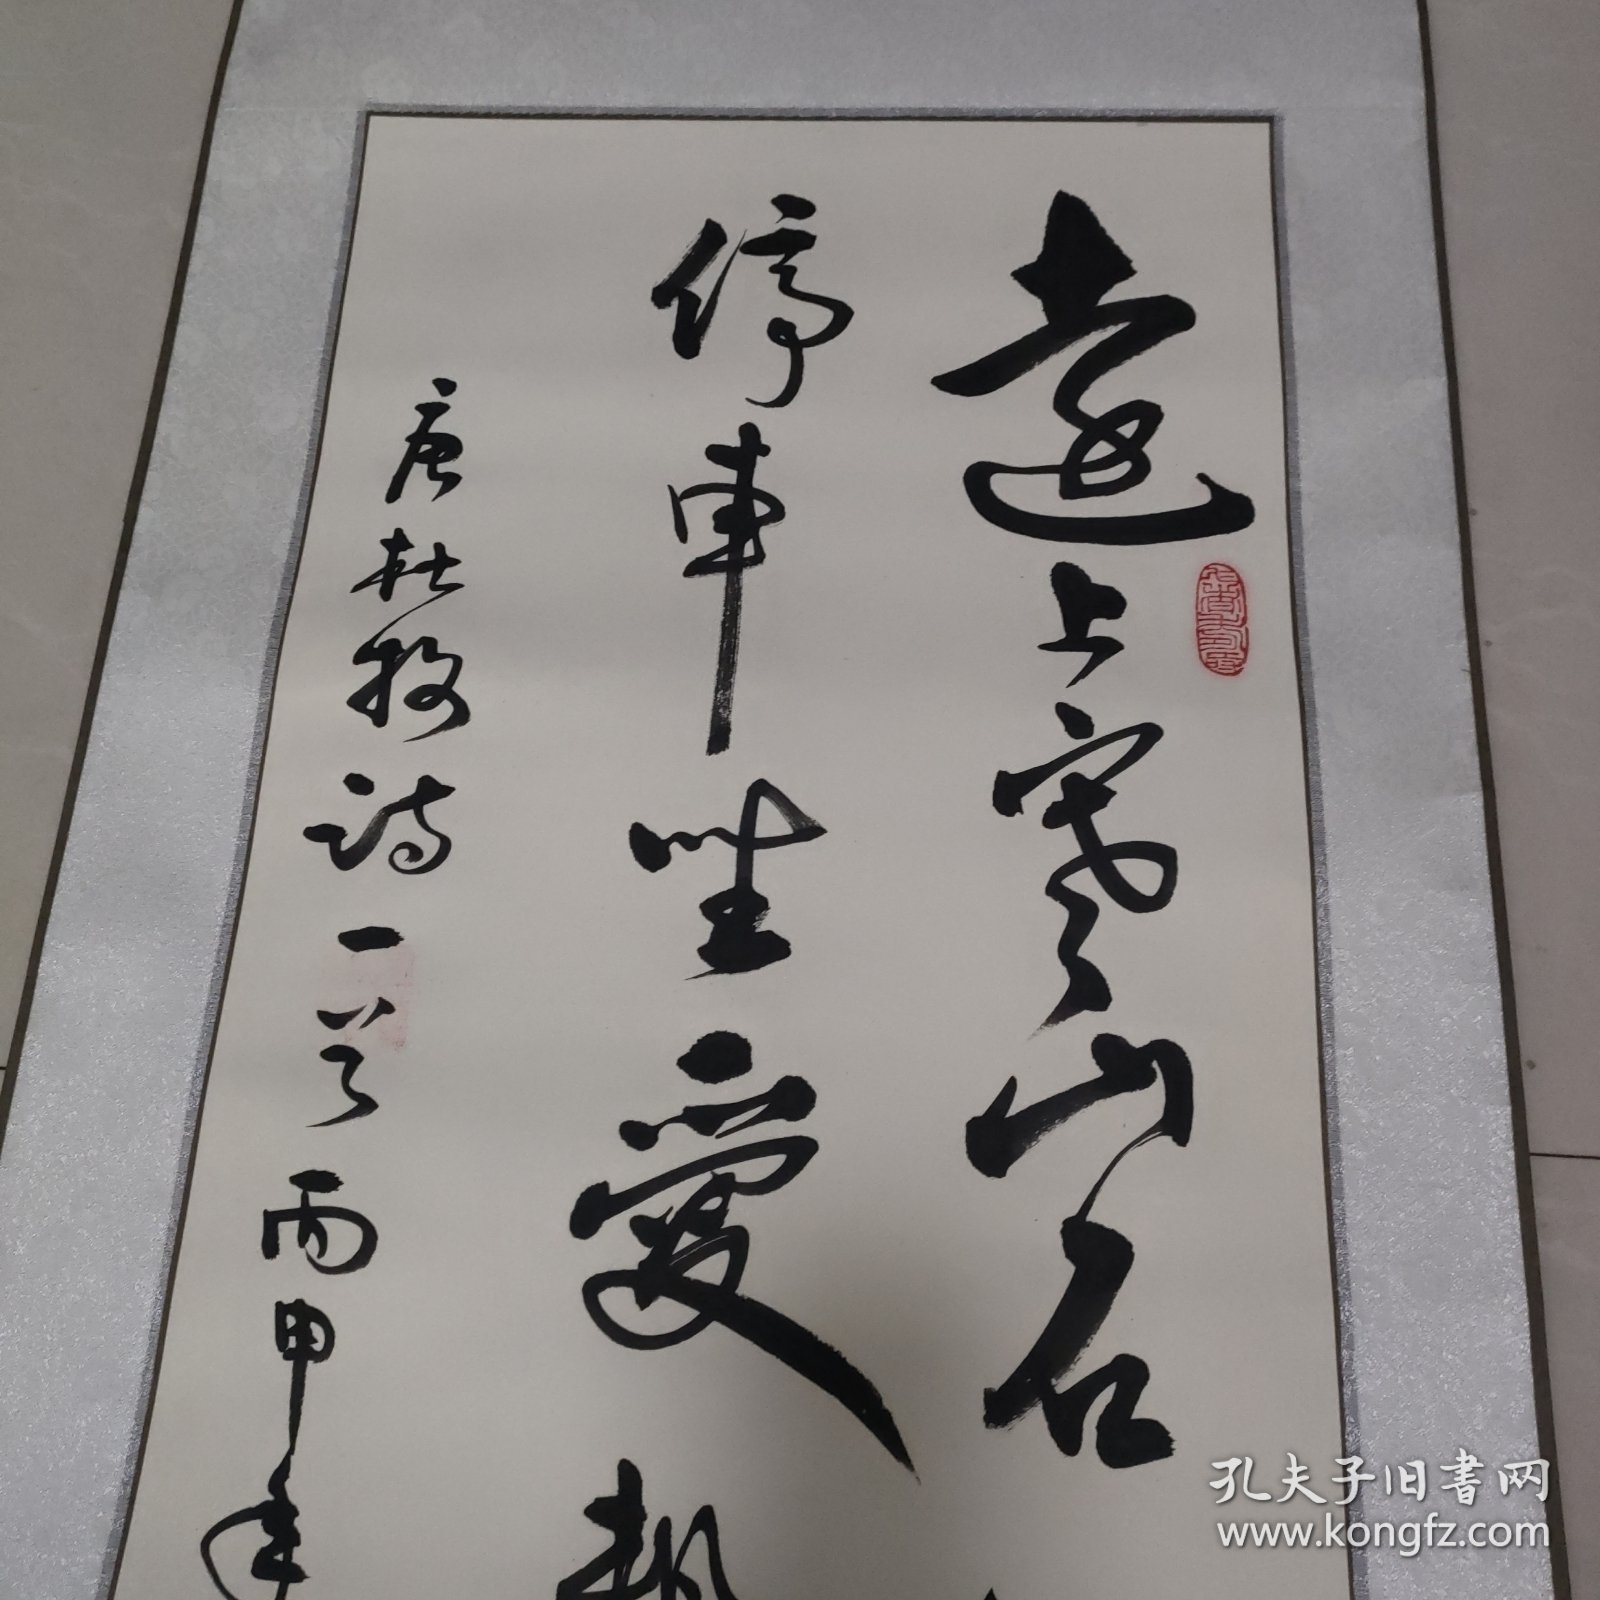 遠上寒山石
停車坐愛楓
唐杜牧詩一首丙申年
孔夫子旧书网
www.kongfz.com